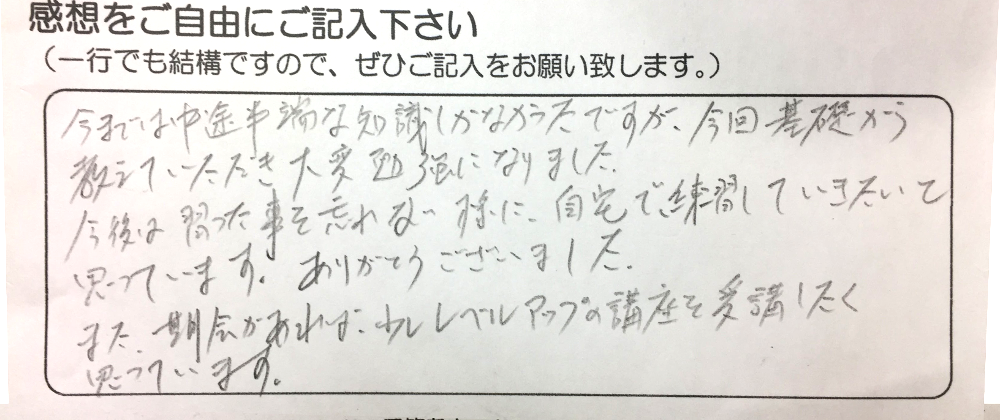 感想をご自由にご記入下さい
(一行でも結構ですので、ぜひご記入をお願い致します。)
今までは中途半端な知識しかなかったですが、今回基礎から
教えていただき大変勉強になりました。
今後は習った事を忘れない様に、自宅で練習していきたいと
思っています。ありがとうございました。
また、期会があれば、少しレベルアップの講座を受講したく
思っています。